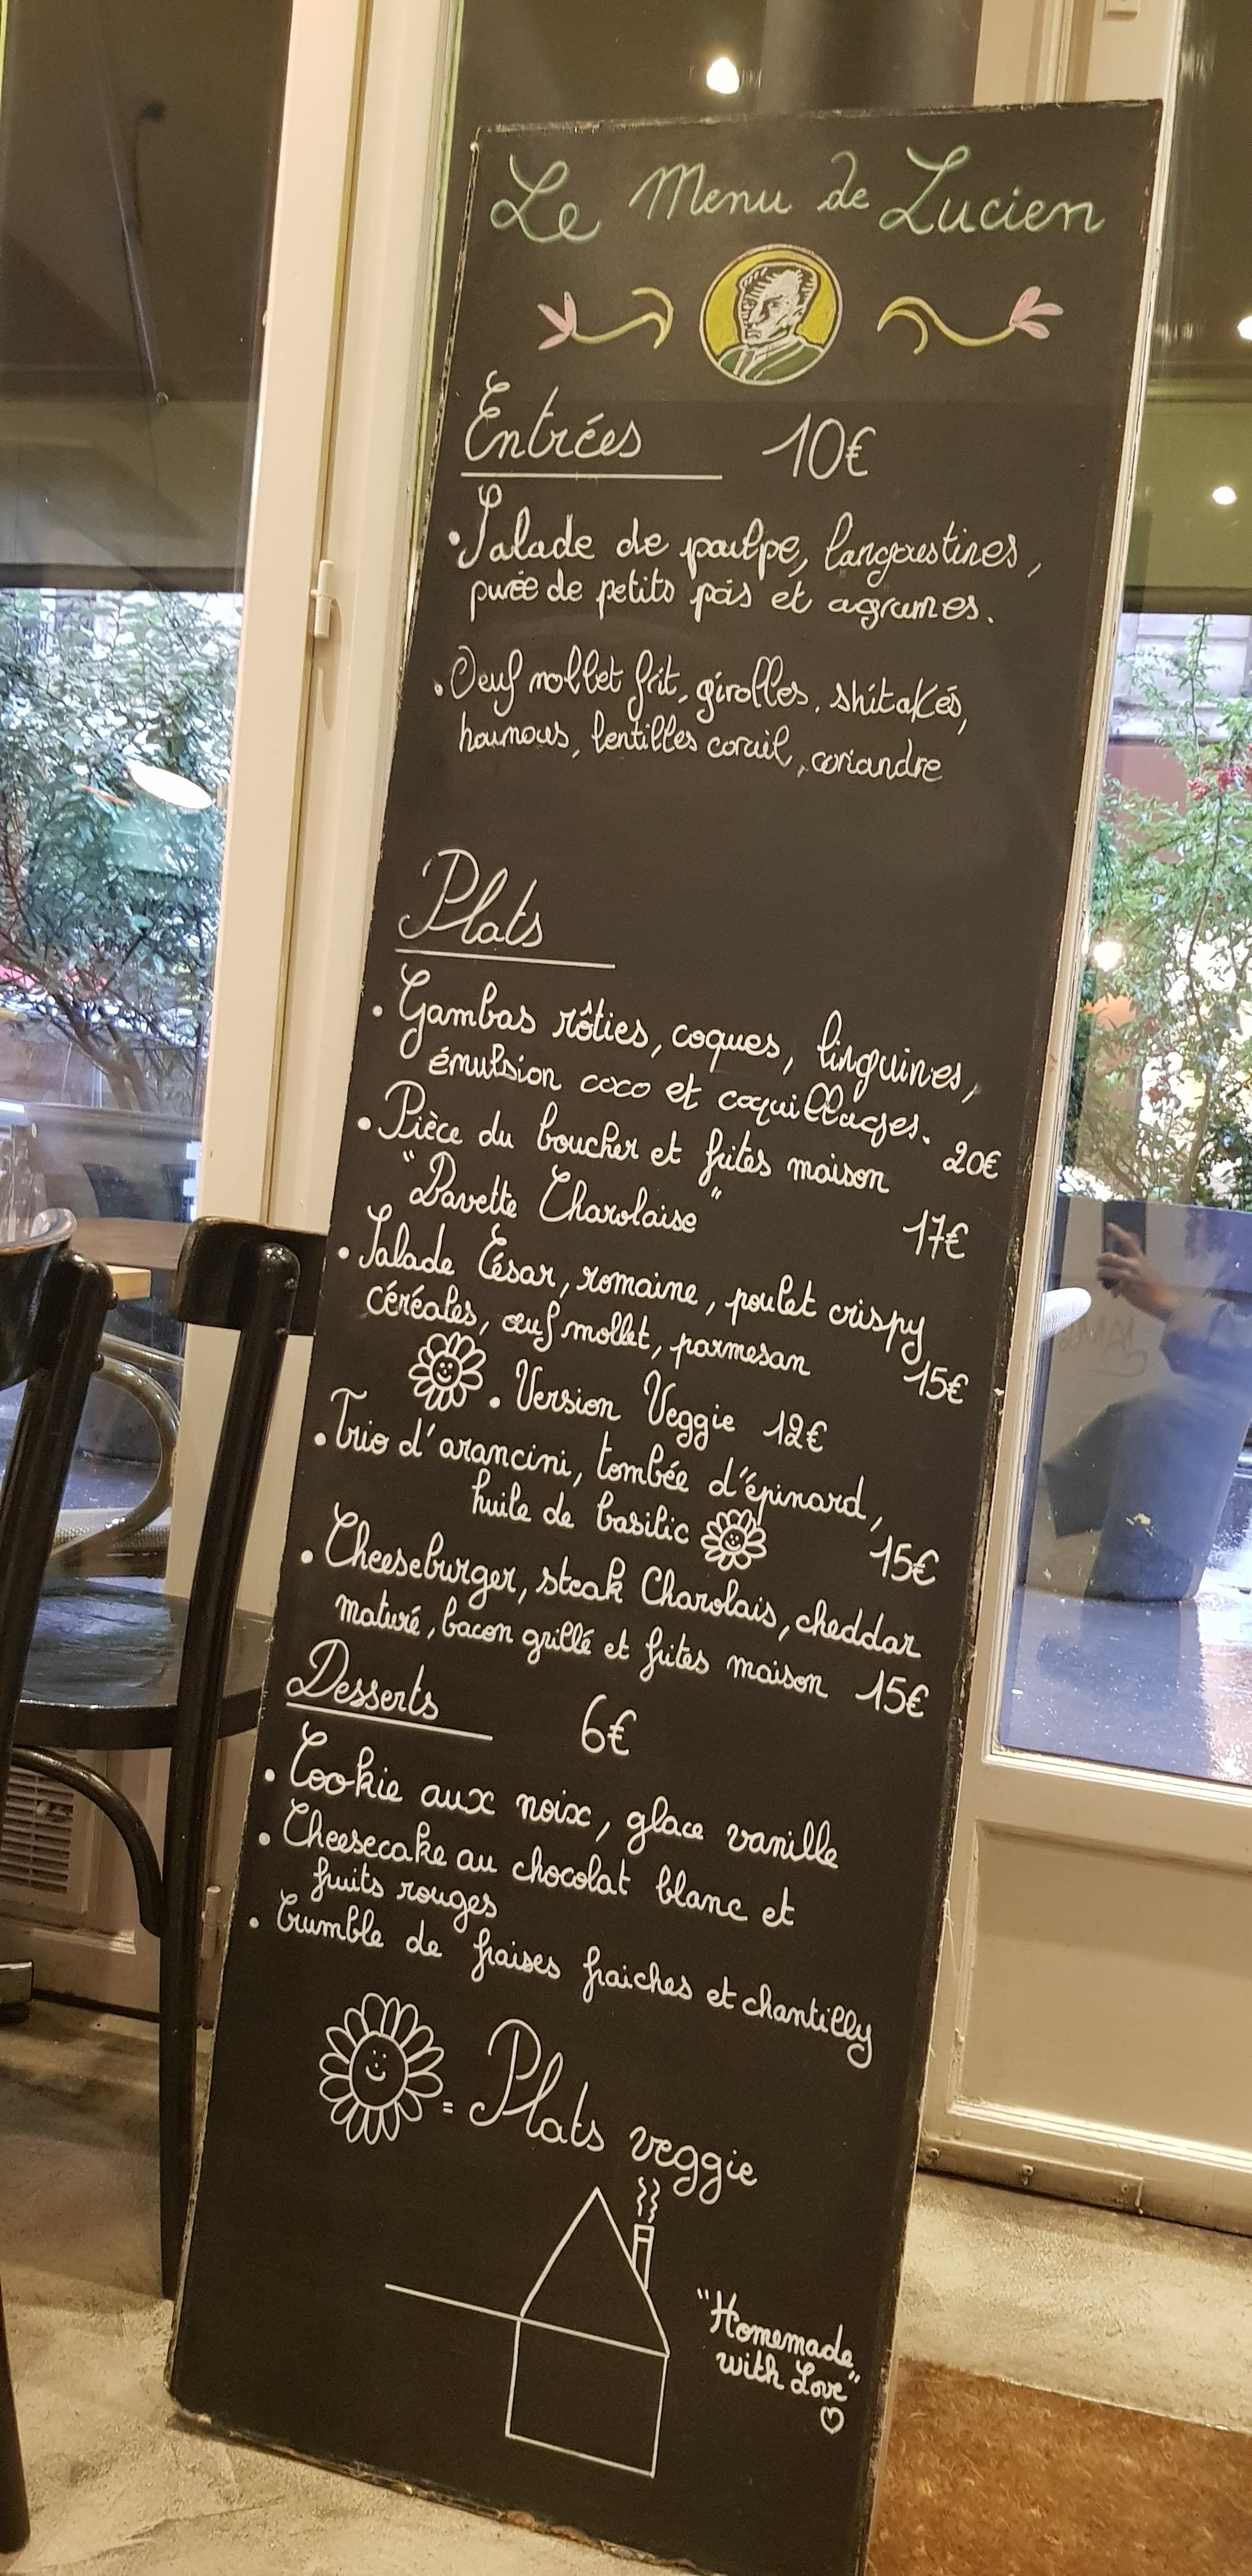 Le Menu de Lucien
Entrées 10€
• Salade de poulpe, langoustines,
purée de petits pois et agrumes.
• Oeuf mollet frit, girolles, shitakés,
houmous, lentilles corail, coriandre
Plats
• Gambas rôties, coques, linguines,
émulsion coco et coquillages. 20€
• Pièce du boucher et frites maison
"Bavette Charolaise" 17€
• Salade César, romaine, poulet crispy
céréales, œuf mollet, parmesan 15€
• Version Veggie 12€
• Trio d'arancini, tombée d'épinard,
huile de basilic 15€
• Cheeseburger, steak Charolais, cheddar
maturé, bacon grillé et frites maison 15€
Desserts 6€
• Cookie aux noix, glace vanille
• Cheesecake au chocolat blanc et
fruits rouges
• Crumble de fraises fraiches et chantilly
= Plats veggie
"Homemade
with Love"